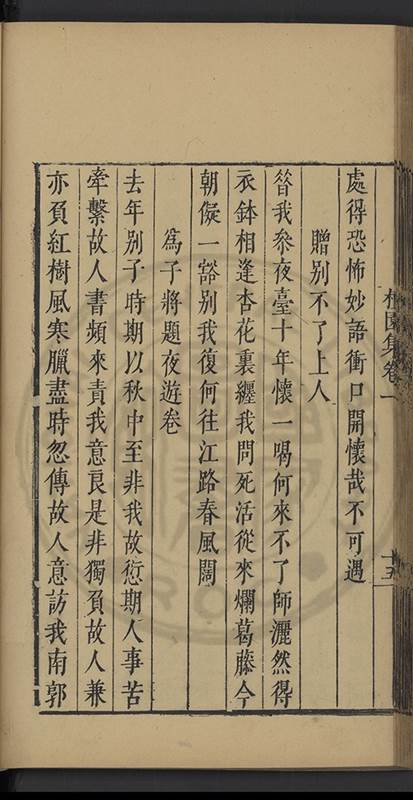 處得恐怖妙語衝口開懷哉不可遇
贈別不了上人
昝我叅夜臺十年懷一喝何來不了師灑然得
衣鉢相逢杏花裏纏我問死活從來爛葛藤今
朝儗一豁別我復何往江路春風闊
爲子將題夜遊卷
去年別子時期以秋中至非我故愆期人事苦
牽繫故人書頻來責我意良是非獨負故人兼
亦負紅樹風寒臘盡時忽傳故人意訪我南郭
集卷一
十五